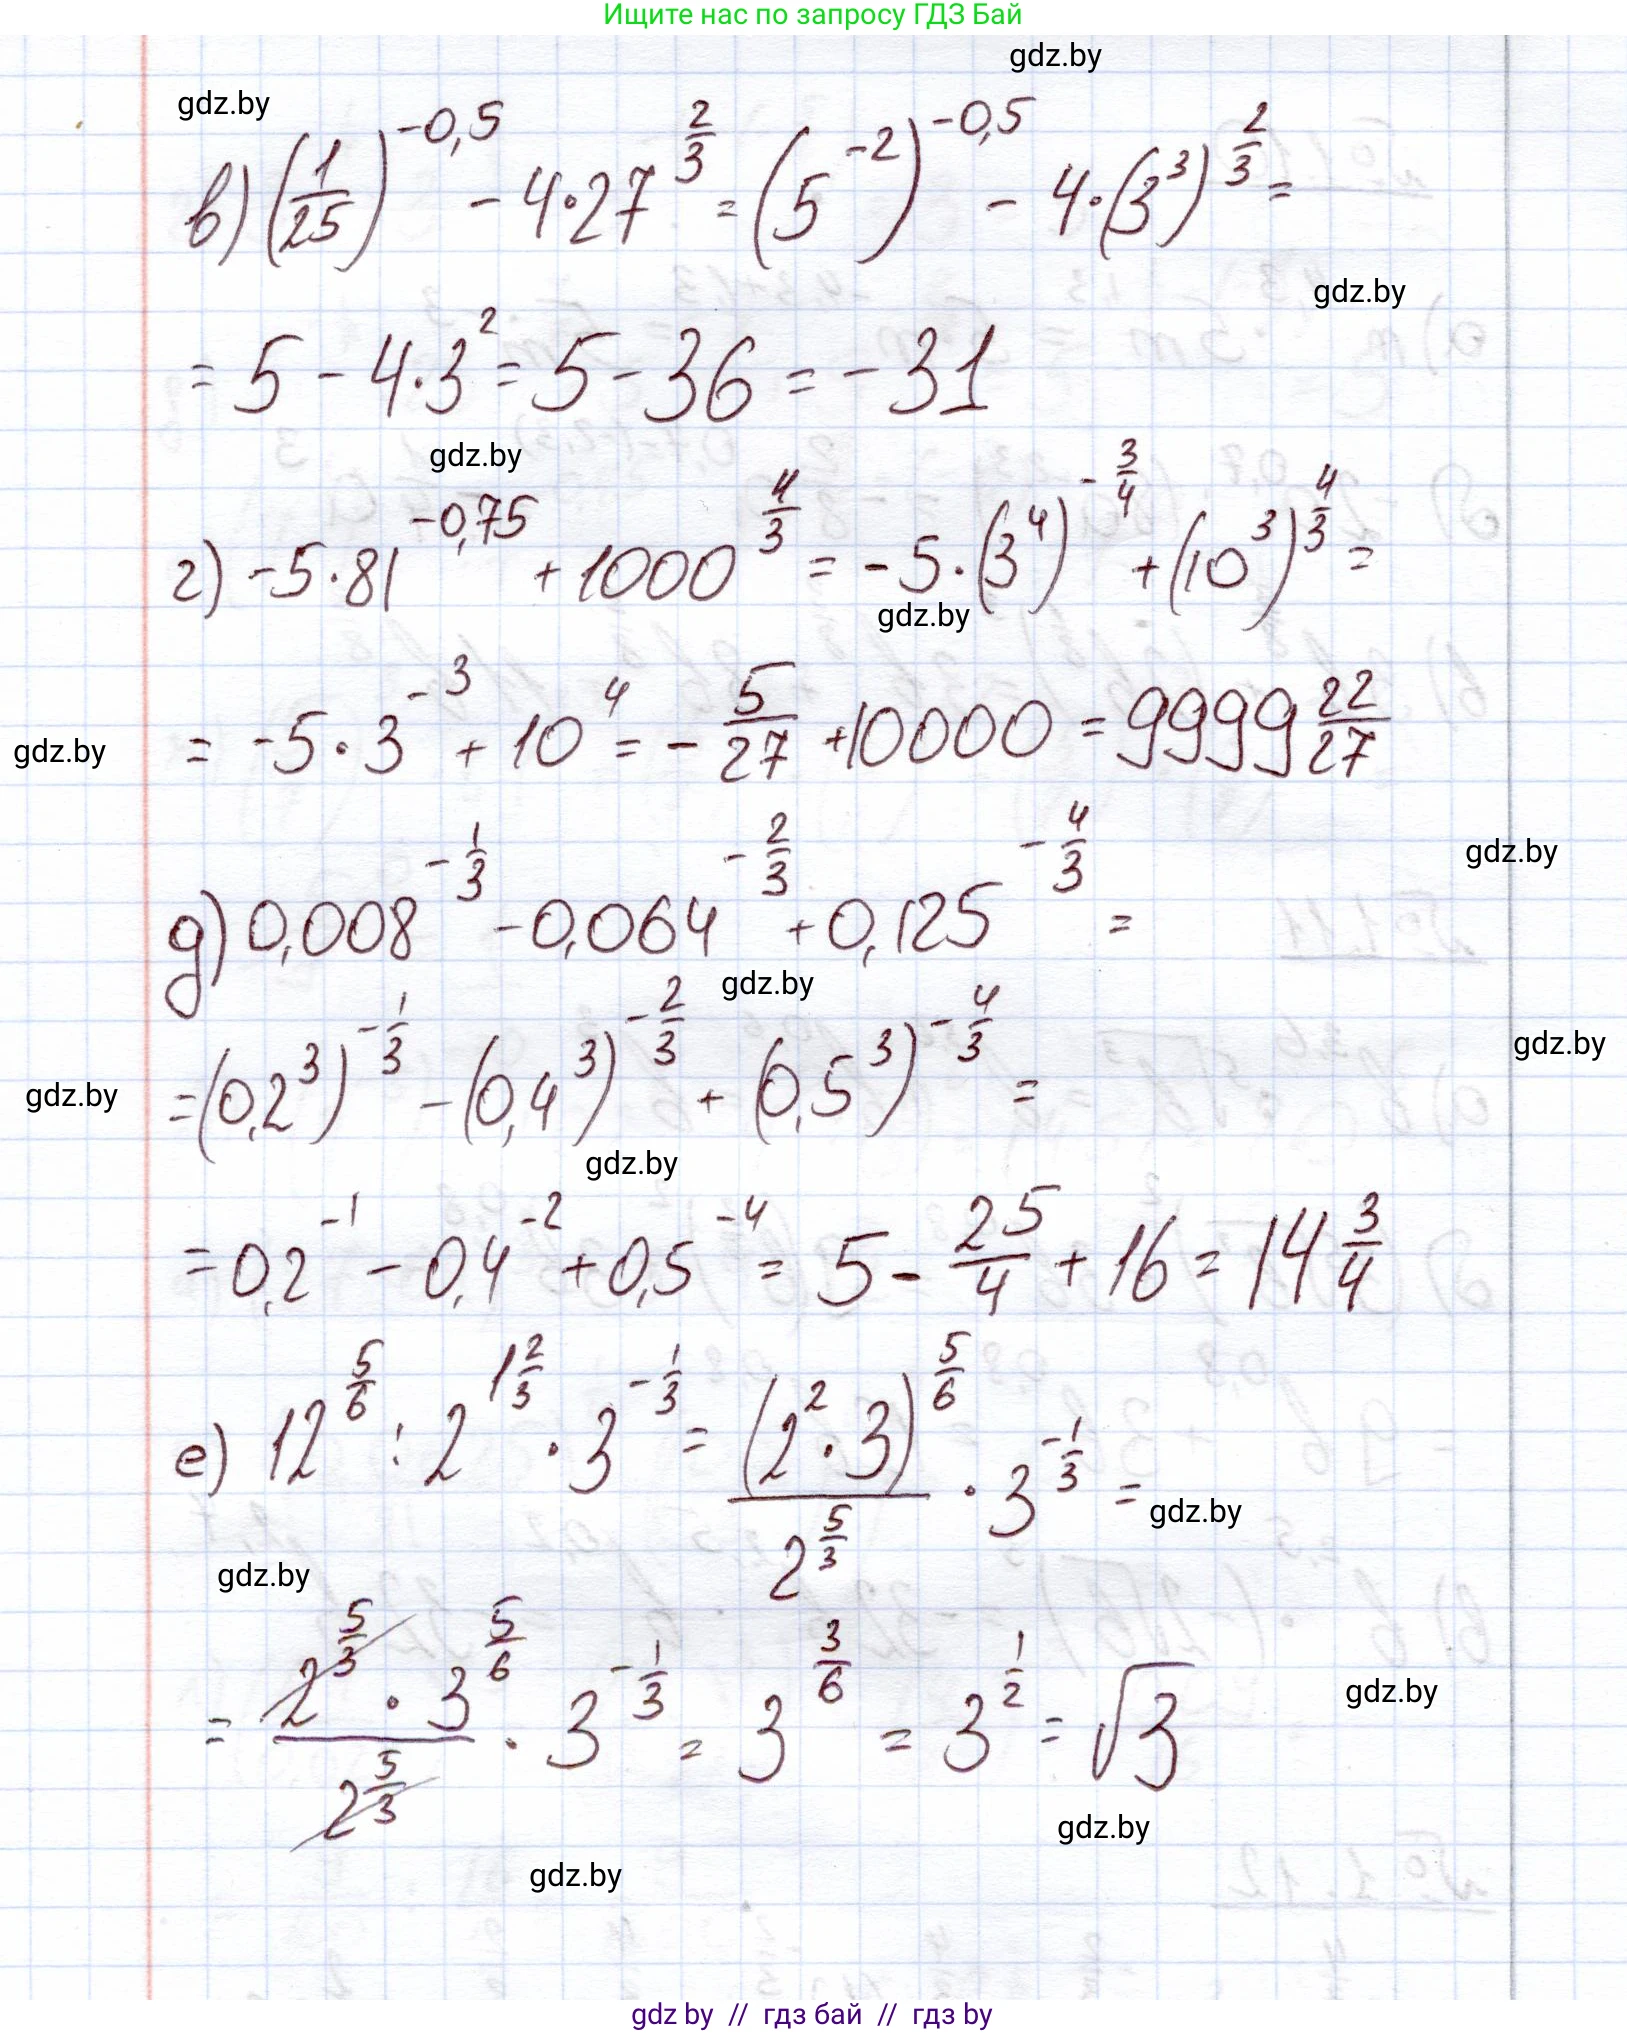 Ищите нас по запросу ГДЗ Бай
gdz.by
gdz.by
в) (1/25)^(-0,5) - 4·27^(2/3) = (5^(-2))^(-0,5) - 4·(3^3)^(2/3) =
gdz.by
= 5 - 4·3^2 = 5 - 36 = -31
gdz.by
г) -5·81^(-0,75) + 1000^(4/3) = -5·(3^4)^(-3/4) + (10^3)^(4/3) =
gdz.by
= -5·3^(-3) + 10^4 = -5/27 + 10000 = 9999 22/27
gdz.by
gdz.by
д) 0,008^(-1/3) - 0,064^(-2/3) + 0,125^(-4/3) =
gdz.by
gdz.by
= (0,2^3)^(-1/3) - (0,4^3)^(-2/3) + (0,5^3)^(-4/3) =
gdz.by
gdz.by
= 0,2^(-1) - 0,4^(-2) + 0,5^(-4) = 5 - 25/4 + 16 = 14 3/4
е) 12^(5/6) : 2^(1 2/3) · 3^(-1/3) = (2^2·3)^(5/6) / 2^(5/3) · 3^(-1/3) =
gdz.by
gdz.by
= 2^(5/3) · 3^(5/6) / 2^(5/3) · 3^(-1/3) = 3^(3/6) = 3^(1/2) = √3
gdz.by
gdz.by
gdz.by
gdz by // гдз бай // гдз by